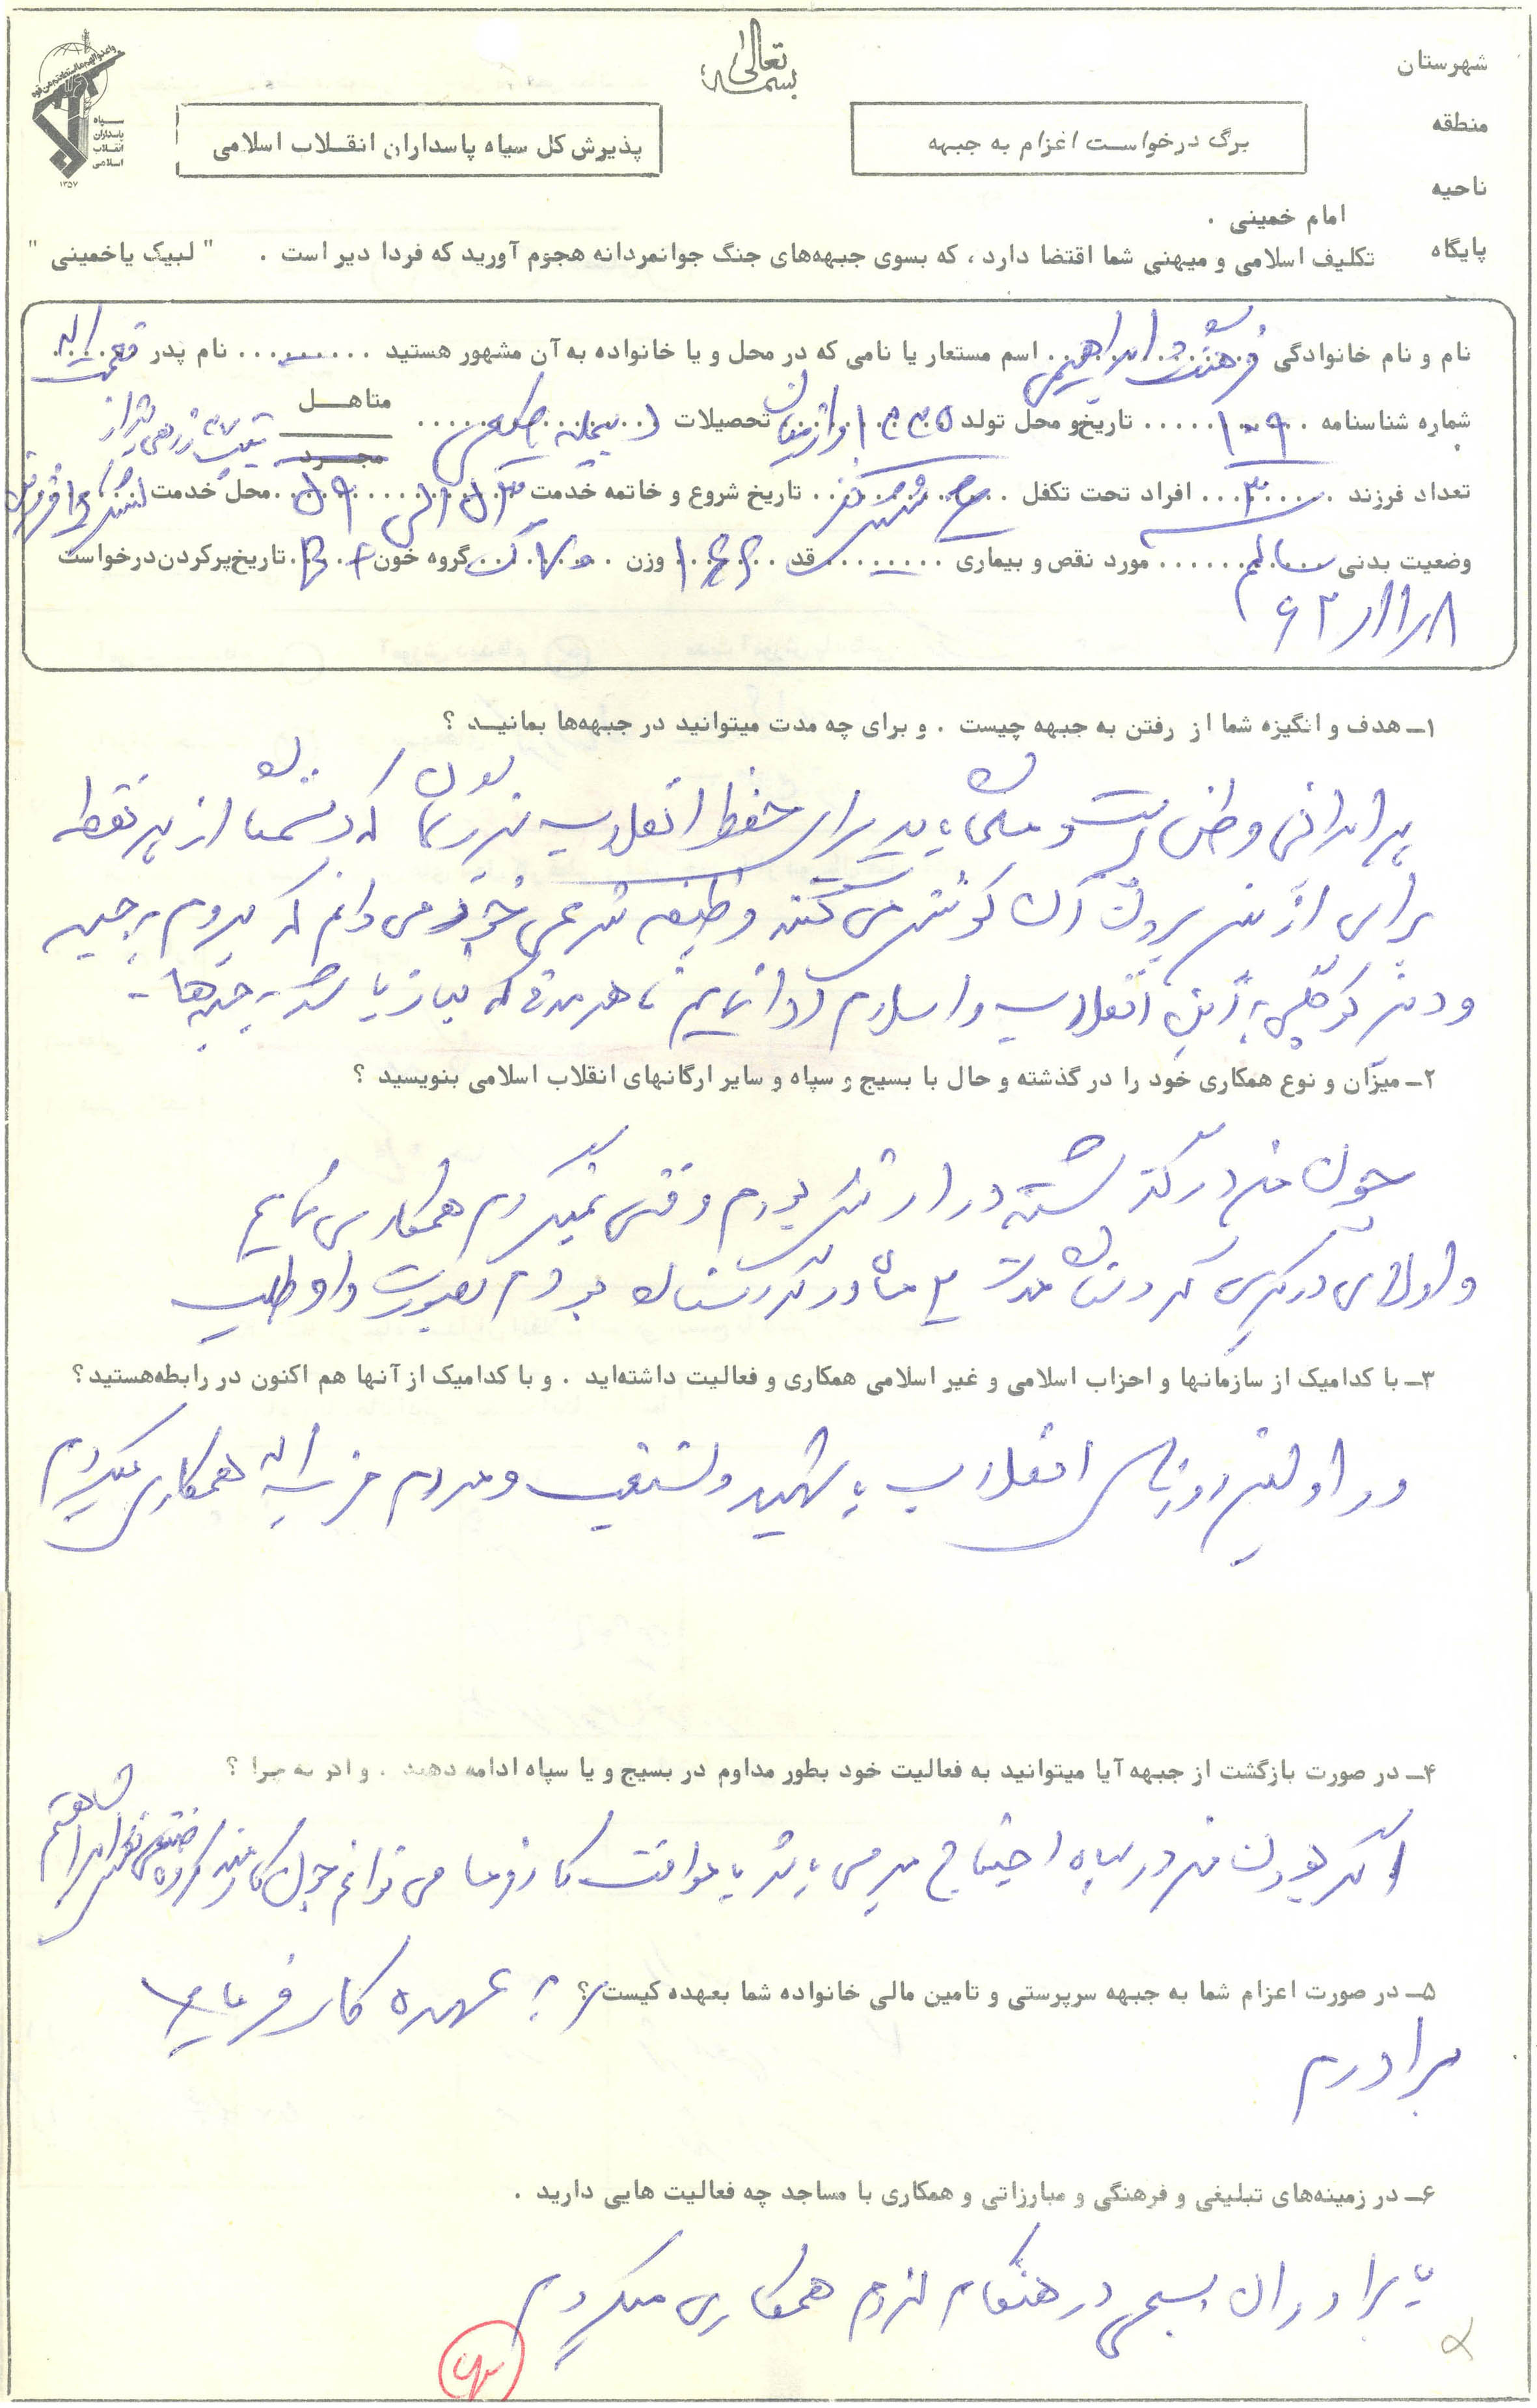 بسمه تعالی
شهرستان
منطقه
ناحیه
پایگاه
برگ درخواست اعزام به جبهه
پذیرش کل سپاه پاسداران انقلاب اسلامی
سپاه
پاسداران
انقلاب
اسلامی
۱۳۵۷
امام خمینی .
تکلیف اسلامی و میهنی شما اقتضا دارد ، که بسوی جبهه‌های جنگ جوانمردانه هجوم آورید که فردا دیر است . " لبیک یاخمینی "
نام و نام خانوادگی ابراهیمی اسم مستعار یا نامی که در محل و یا خانواده به آن مشهور هستید ــ نام پدر
شماره شناسنامه ۱۰۹ تاریخ و محل تولد ۱۳۳۵ تحصیلات متاهل مجرد
تعداد فرزند ۳ افراد تحت تکفل شش نفر تاریخ شروع و خاتمه خدمت ۵۳ الی ۵۹ محل خدمت لشکر
وضعیت بدنی سالم مورد نقص و بیماری ــ قد ۱۶۶ وزن ۷۰ ک گروه خون B+ تاریخ پر کردن درخواست
۶۲/۱۱/۱۸
۱ـ هدف و انگیزه شما از رفتن به جبهه چیست . و برای چه مدت میتوانید در جبهه‌ها بمانیـد ؟
هر ایرانی وطن پرست و مسلمان باید برای حفظ انقلاب که دشمنان از هر نقطه
برای از بین بردن آن کوشش می کنند وظیفه شرعی خود می دانم که بروم به جبهه
و دین کوچکی به این انقلاب و اسلام ادا نمایم تا هر مدتی که نیاز باشد به جبهه‌ها ــ
۲ـ میزان و نوع همکاری خود را در گذشته و حال با بسیج و سپاه و سایر ارگانهای انقلاب اسلامی بنویسید ؟
چون من در گذشته در ارتش بودم وقتی نمیکردم همکاری نمایم
و اولهای درگیری کردستان مدت ۳ ماه در کردستان بودم بصورت داوطلب
۳ـ با کدامیک از سازمانها و احزاب اسلامی و غیر اسلامی همکاری و فعالیت داشته‌اید . و با کدامیک از آنها هم اکنون در رابطه هستید ؟
در اولین روزهای انقلاب با شهید دستغیب و مردم حزب الله همکاری میکردم
۴ـ در صورت بازگشت از جبهه آیا میتوانید به فعالیت خود بطور مداوم در بسیج و یا سپاه ادامه دهید . و اگر نه چرا ؟
اگر بودن من در سپاه احتیاج مبرمی باشد با موافقت کارفرما می توانم چون کارمند گروه صنعتی نقش ایران هستم
۵ـ در صورت اعزام شما به جبهه سرپرستی و تامین مالی خانواده شما بعهده کیست ؟ به عهده کارفرما و
برادرم
۶ـ در زمینه‌های تبلیغی و فرهنگی و مبارزاتی و همکاری با مساجد چه فعالیت هایی دارید .
با برادران بسیجی در هنگام لزوم همکاری میکردم